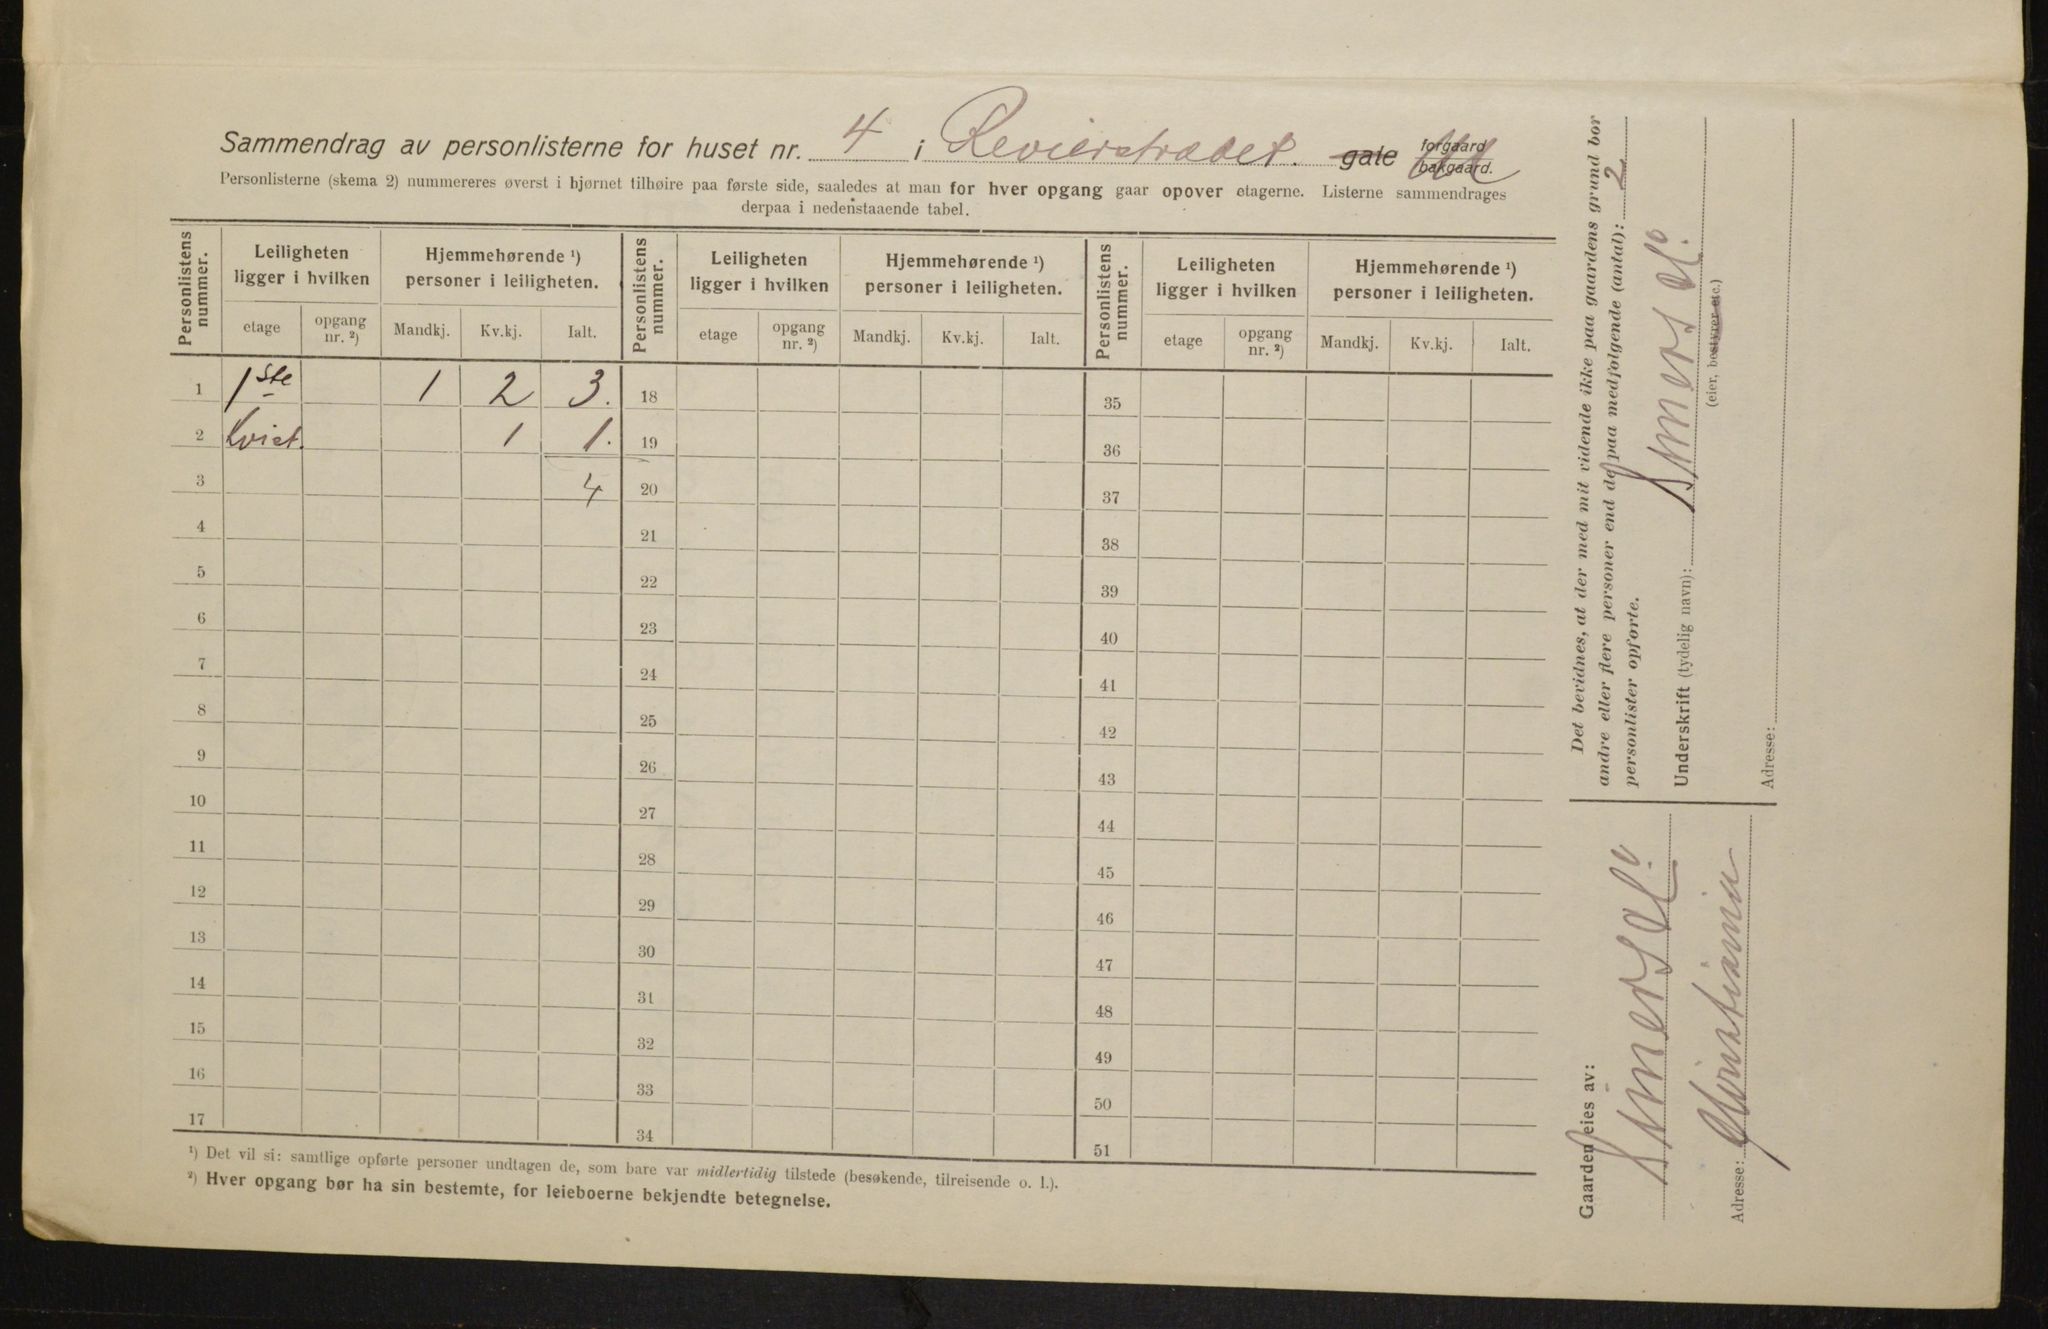 Sammendrag av personlisterne for huset nr. 4 i Revierstrædet. gate forgaard bakgaard.
Personlisterne (skema 2) nummereres øverst i hjørnet tilhøire paa første side, saaledes at man for hver opgang gaar opover etagerne. Listerne sammendrages
derpaa i nedenstaaende tabel.
Personlistens nummer. Leiligheten ligger i hvilken Hjemmehørende ¹) personer i leiligheten. Personlistens nummer. Leiligheten ligger i hvilken Hjemmehørende ¹) personer i leiligheten. Personlistens nummer. Leiligheten ligger i hvilken Hjemmehørende ¹) personer i leiligheten.
etage opgang nr. ²) Mandkj. Kv.kj. Ialt. etage opgang nr. ²) Mandkj. Kv.kj. Ialt. etage opgang nr. ²) Mandkj. Kv.kj. Ialt.
1 1ste 1 2 3. 18 35
2 Kvist. 1 1. 19 36
3 4 20 37
4 21 38
5 22 39
6 23 40
7 24 41
8 25 42
9 26 43
10 27 44
11 28 45
12 29 46
13 30 47
14 31 48
15 32 49
16 33 50
17 34 51
¹) Det vil si: samtlige opførte personer undtagen de, som bare var midlertidig tilstede (besøkende, tilreisende o. l.).
²) Hver opgang bør ha sin bestemte, for leieboerne bekjendte betegnelse.
Det bevidnes, at der med mit vidende ikke paa gaardens grund bor
andre eller flere personer end de paa medfølgende (antal): 2
personlister opførte.
Underskrift (tydelig navn):
(eier, bestyrer etc.)
Adresse:
Gaarden eies av:
Adresse: Kristiania